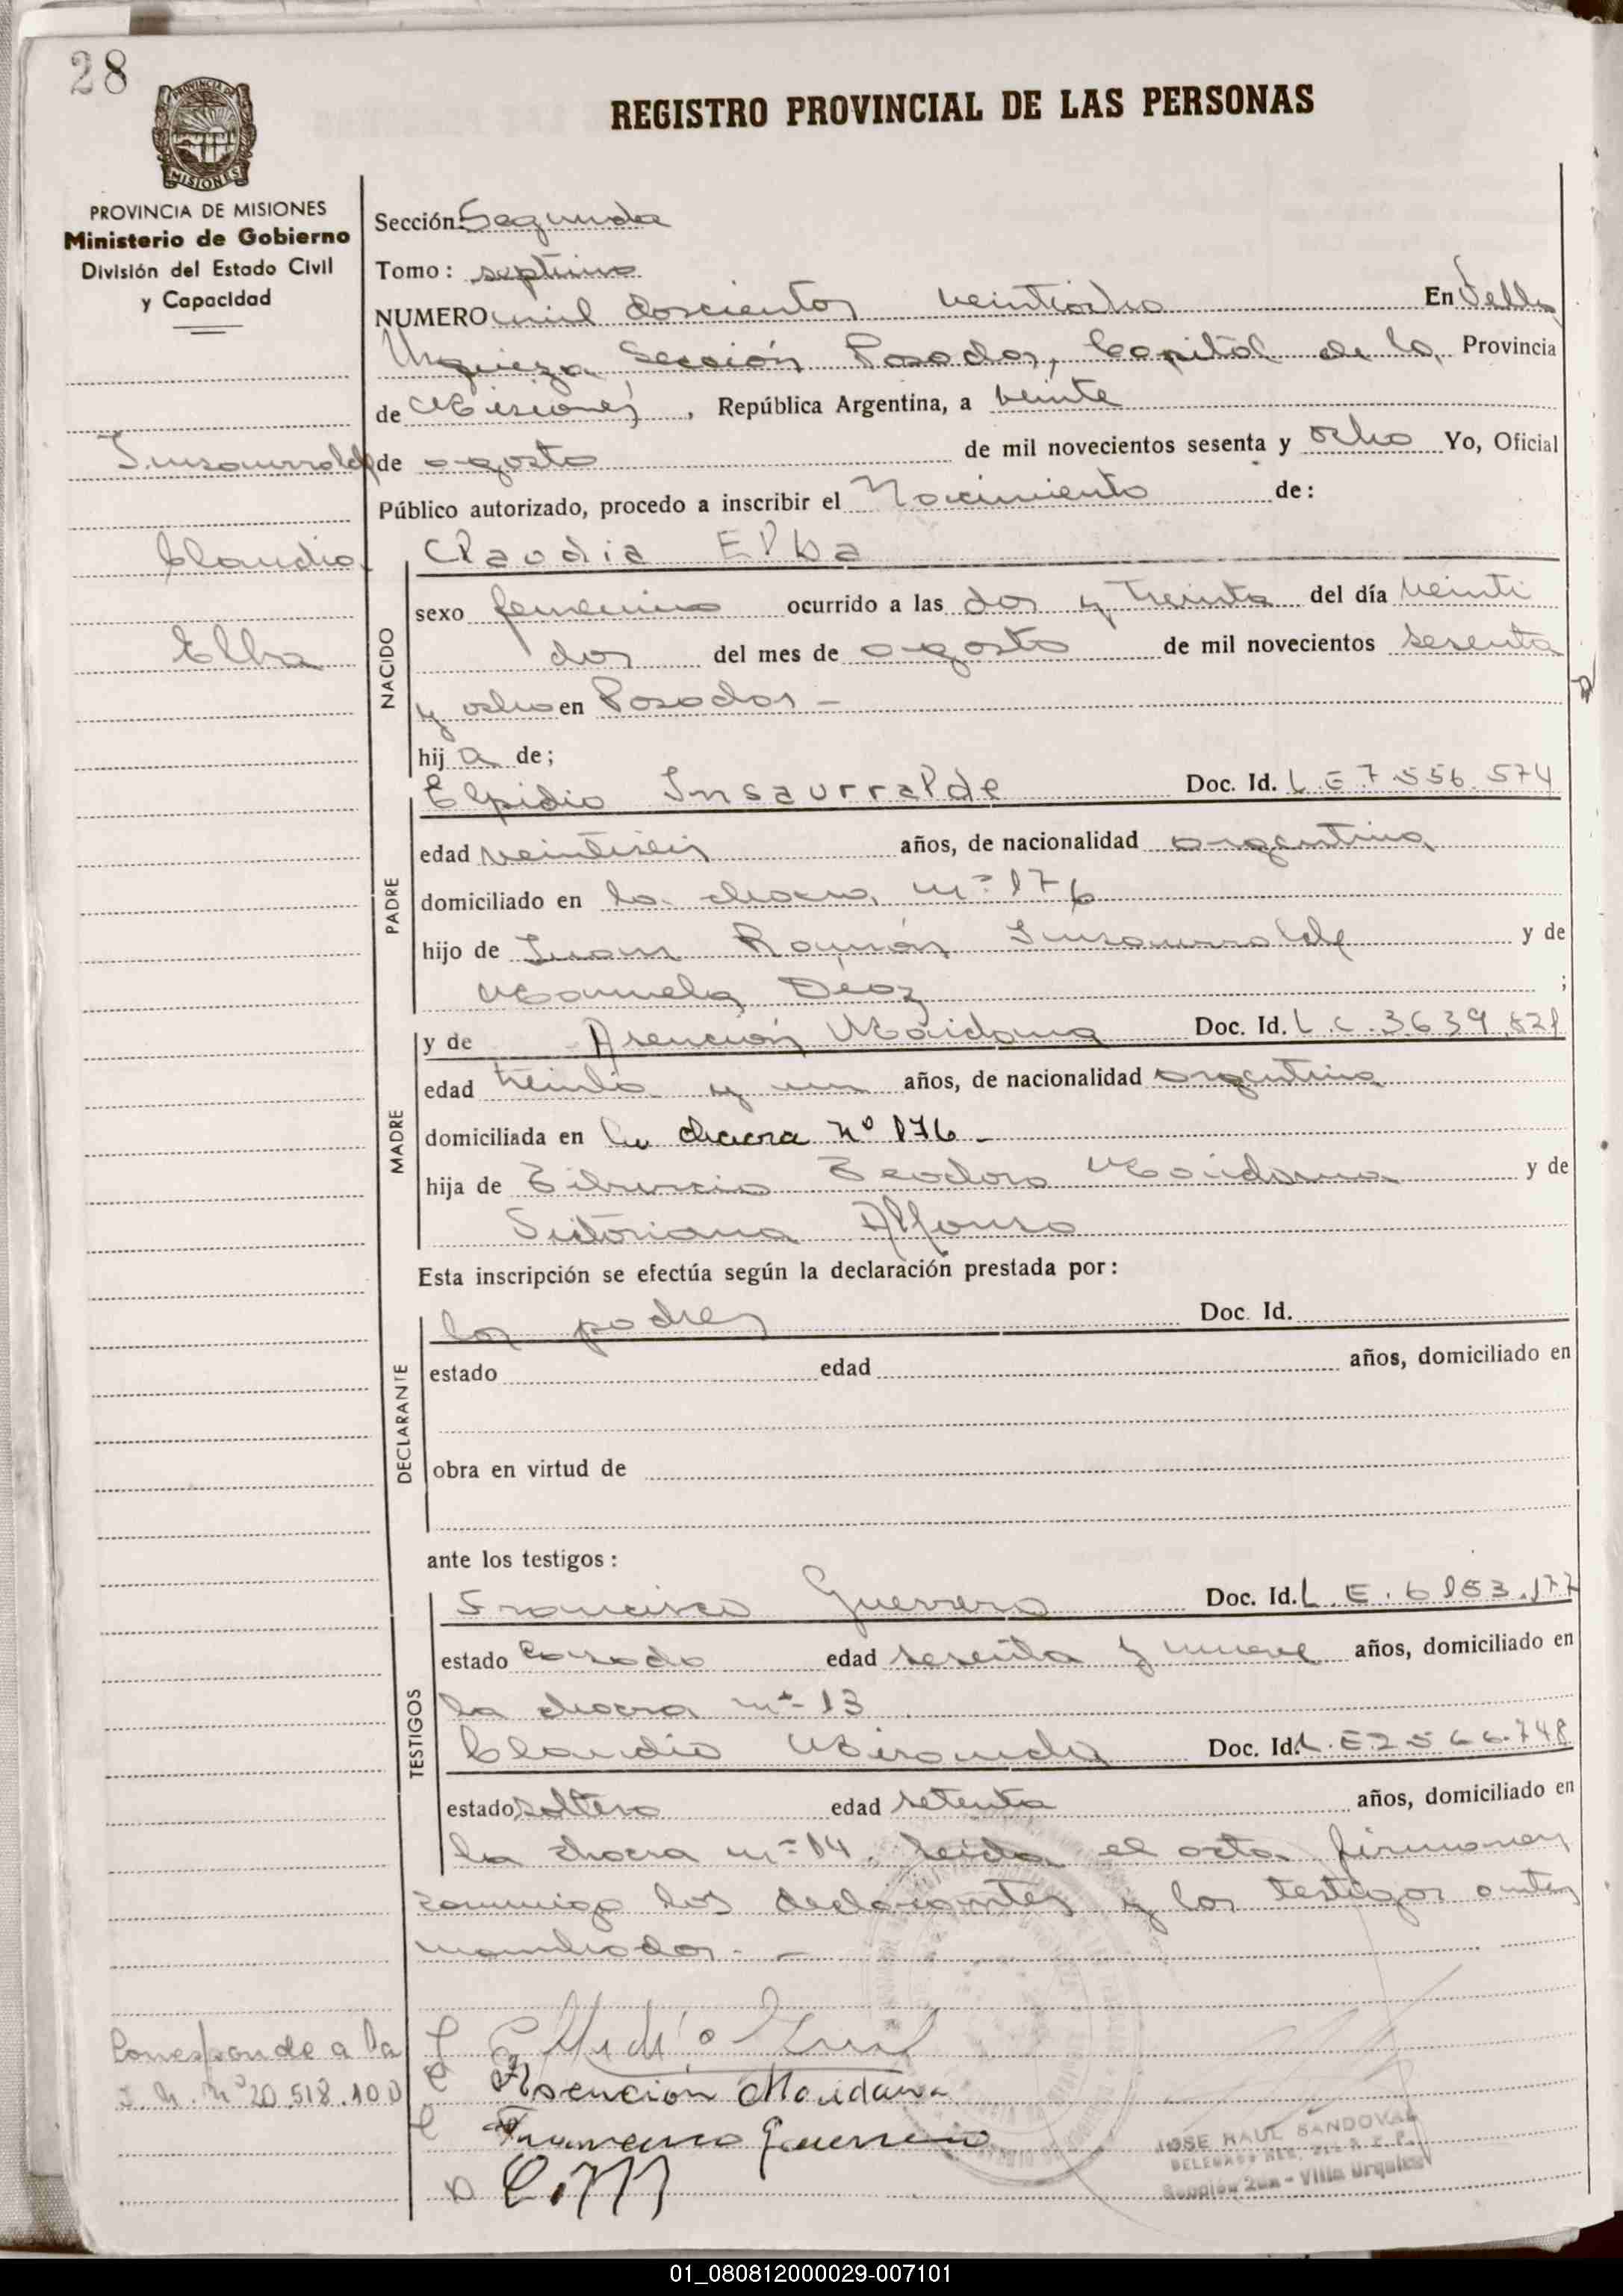 28
PROVINCIA DE
MISIONES
REGISTRO PROVINCIAL DE LAS PERSONAS
PROVINCIA DE MISIONES
Ministerio de Gobierno
División del Estado Civil
y Capacidad
Insaurralde
Claudia
Elba
Sección: Segunda
Tomo: septimo
NUMERO mil doscientos veintiocho En Villa
Urquiza Sección Posadas, Capital de la Provincia
de Misiones, República Argentina, a veinte
de agosto de mil novecientos sesenta y ocho Yo, Oficial
Público autorizado, procedo a inscribir el Nacimiento de:
NACIDO
Claudia Elba
sexo femenino ocurrido a las dos y treinta del día veinti
dos del mes de agosto de mil novecientos sesenta
y ocho en Posadas -
hij a de;
PADRE
Elpidio Insaurralde Doc. Id. L.E.7.556.574
edad veintiseis años, de nacionalidad argentina
domiciliado en la chacra nº 176
hijo de Juan Ramón Insaurralde y de
Manuela Diaz ;
MADRE
y de Asención Maidana Doc. Id. L.C.3.639.821
edad treinta y un años, de nacionalidad argentina
domiciliada en la chacra nº 176 -
hija de Tiburcio Teodoro Maidana y de
Victoriana Alfonso
Esta inscripción se efectúa según la declaración prestada por:
DECLARANTE
los padres Doc. Id.
estado edad años, domiciliado en
obra en virtud de
ante los testigos:
TESTIGOS
Francisco Guerrero Doc. Id. L.E. 6153.177
estado casado edad sesenta y nueve años, domiciliado en
la chacra nº 13
Claudio Miranda Doc. Id. L.E 2566.748
estado soltero edad setenta años, domiciliado en
la chacra nº 14. Leida el acta firmaron
conmigo los declarantes y los testigos antes
nombrados. -
Corresponde a la
I.N. Nº 20.518.100
Asención Maidana
Francisco Guerrero
C.M
JOSE RAUL SANDOVAL
Sección 2da - Villa Urquiza
01_080812000029-007101